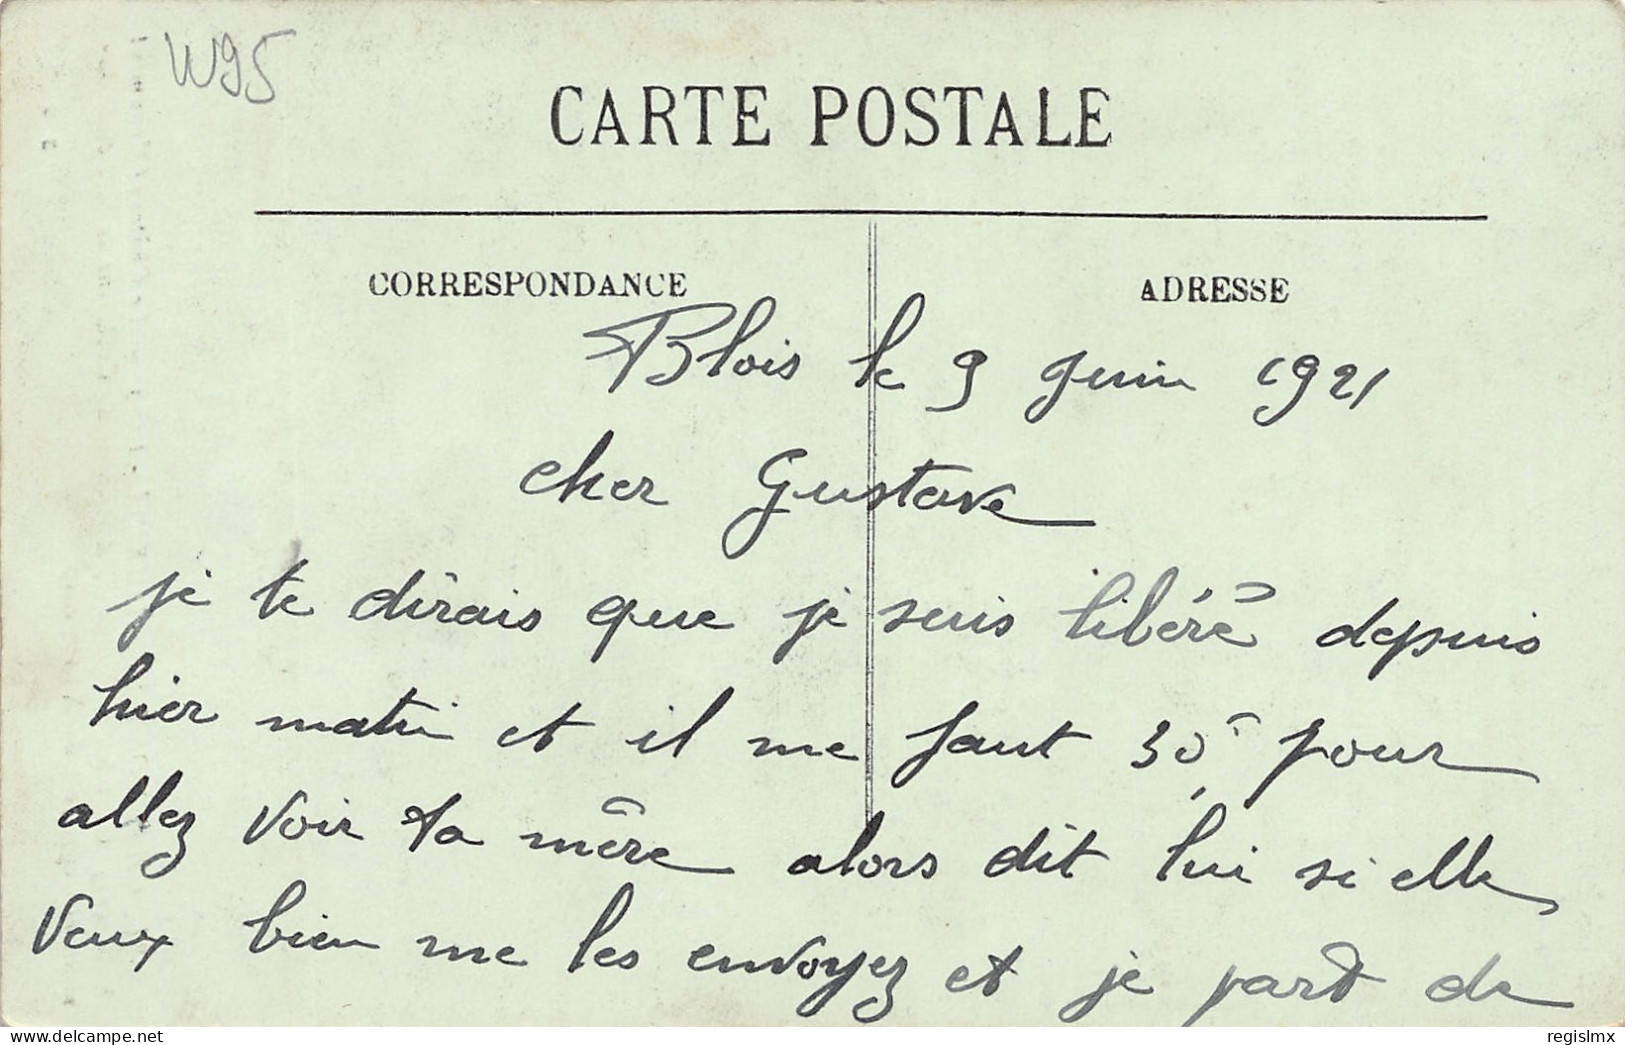 W95
CARTE POSTALE
CORRESPONDANCE
ADRESSE
Blois le 9 Juin 1921
cher Gustave
je te dirais que je suis libéré depuis
hier matin et il me faut 30f pour
allez voir ta mère alors dit lui si elle
veux bien me les envoyez et je part de
www.delcampe.net
regislmx